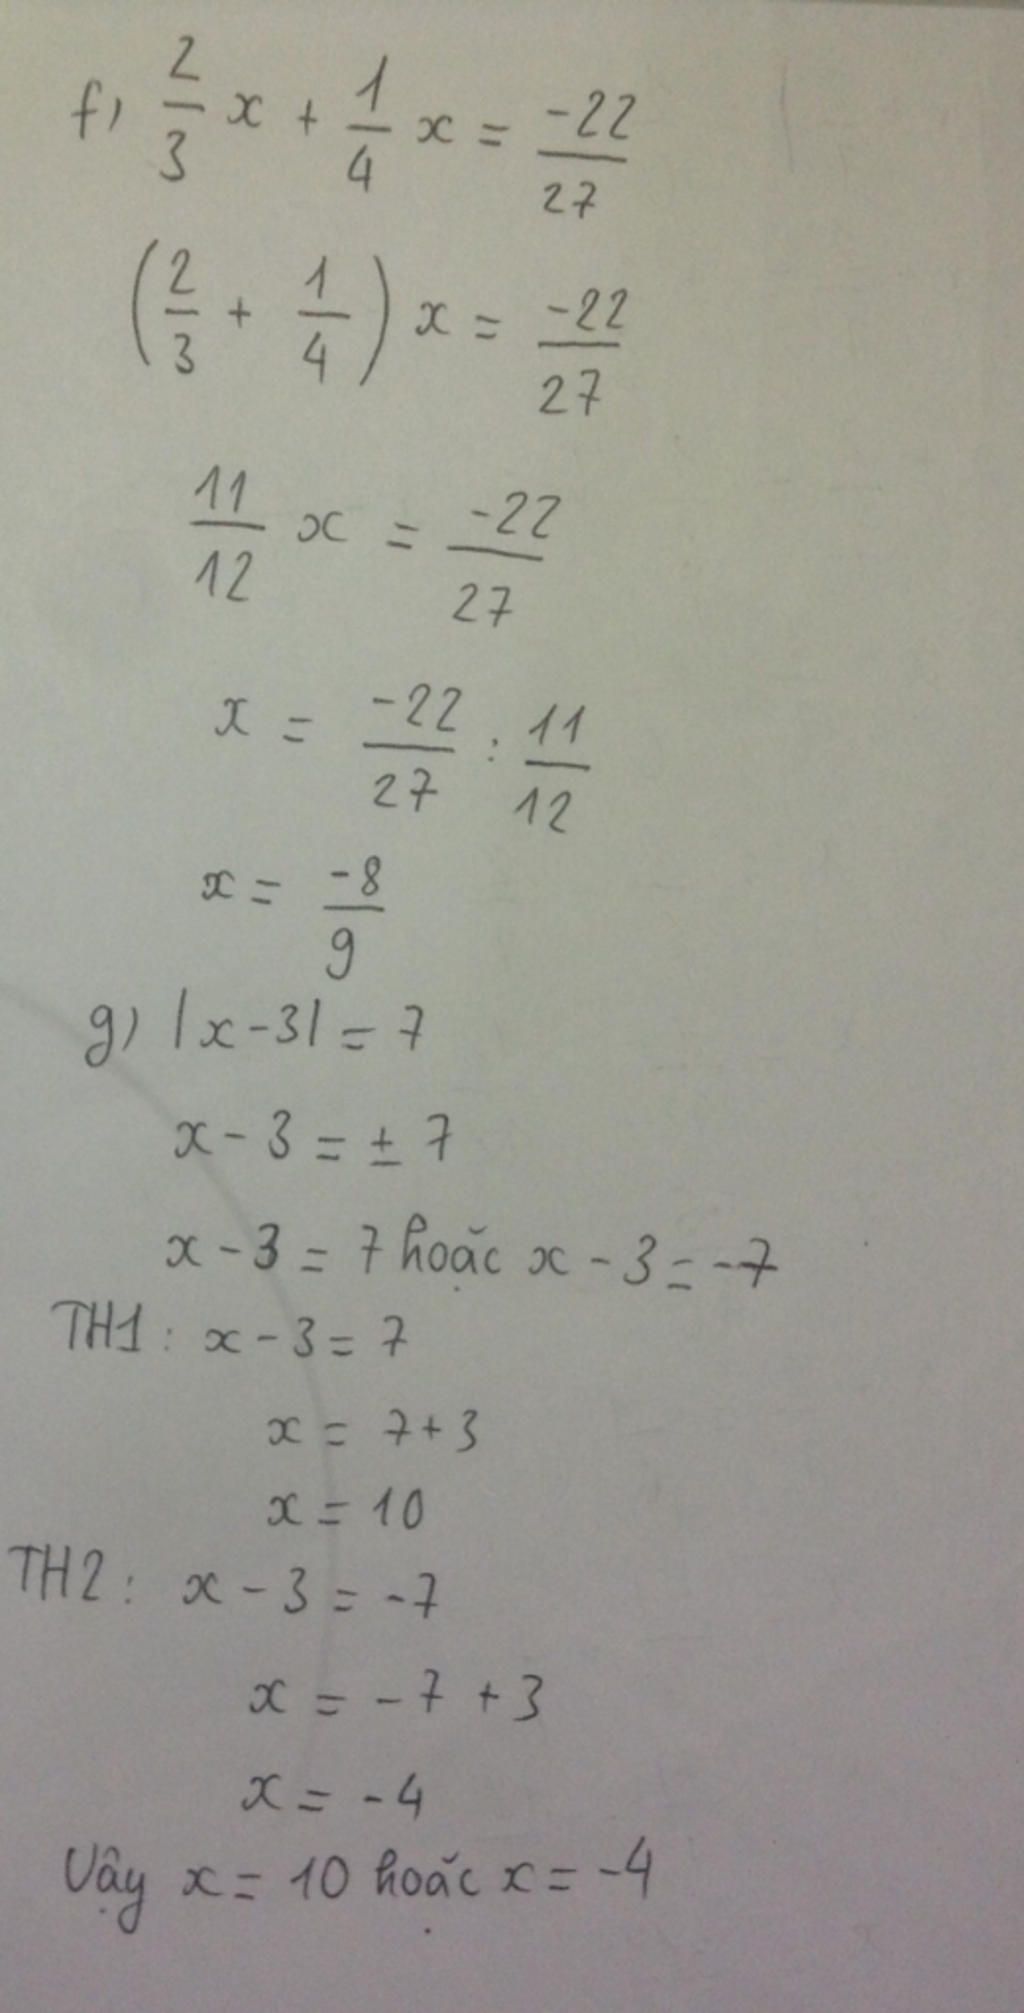 f) 2/3 x + 1/4 x = -22/27
(2/3 + 1/4) x = -22/27
11/12 x = -22/27
x = -22/27 : 11/12
x = -8/9
g) |x - 3| = 7
x - 3 = ± 7
x - 3 = 7 hoặc x - 3 = -7
TH1: x - 3 = 7
x = 7 + 3
x = 10
TH2: x - 3 = -7
x = -7 + 3
x = -4
Vậy x = 10 hoặc x = -4